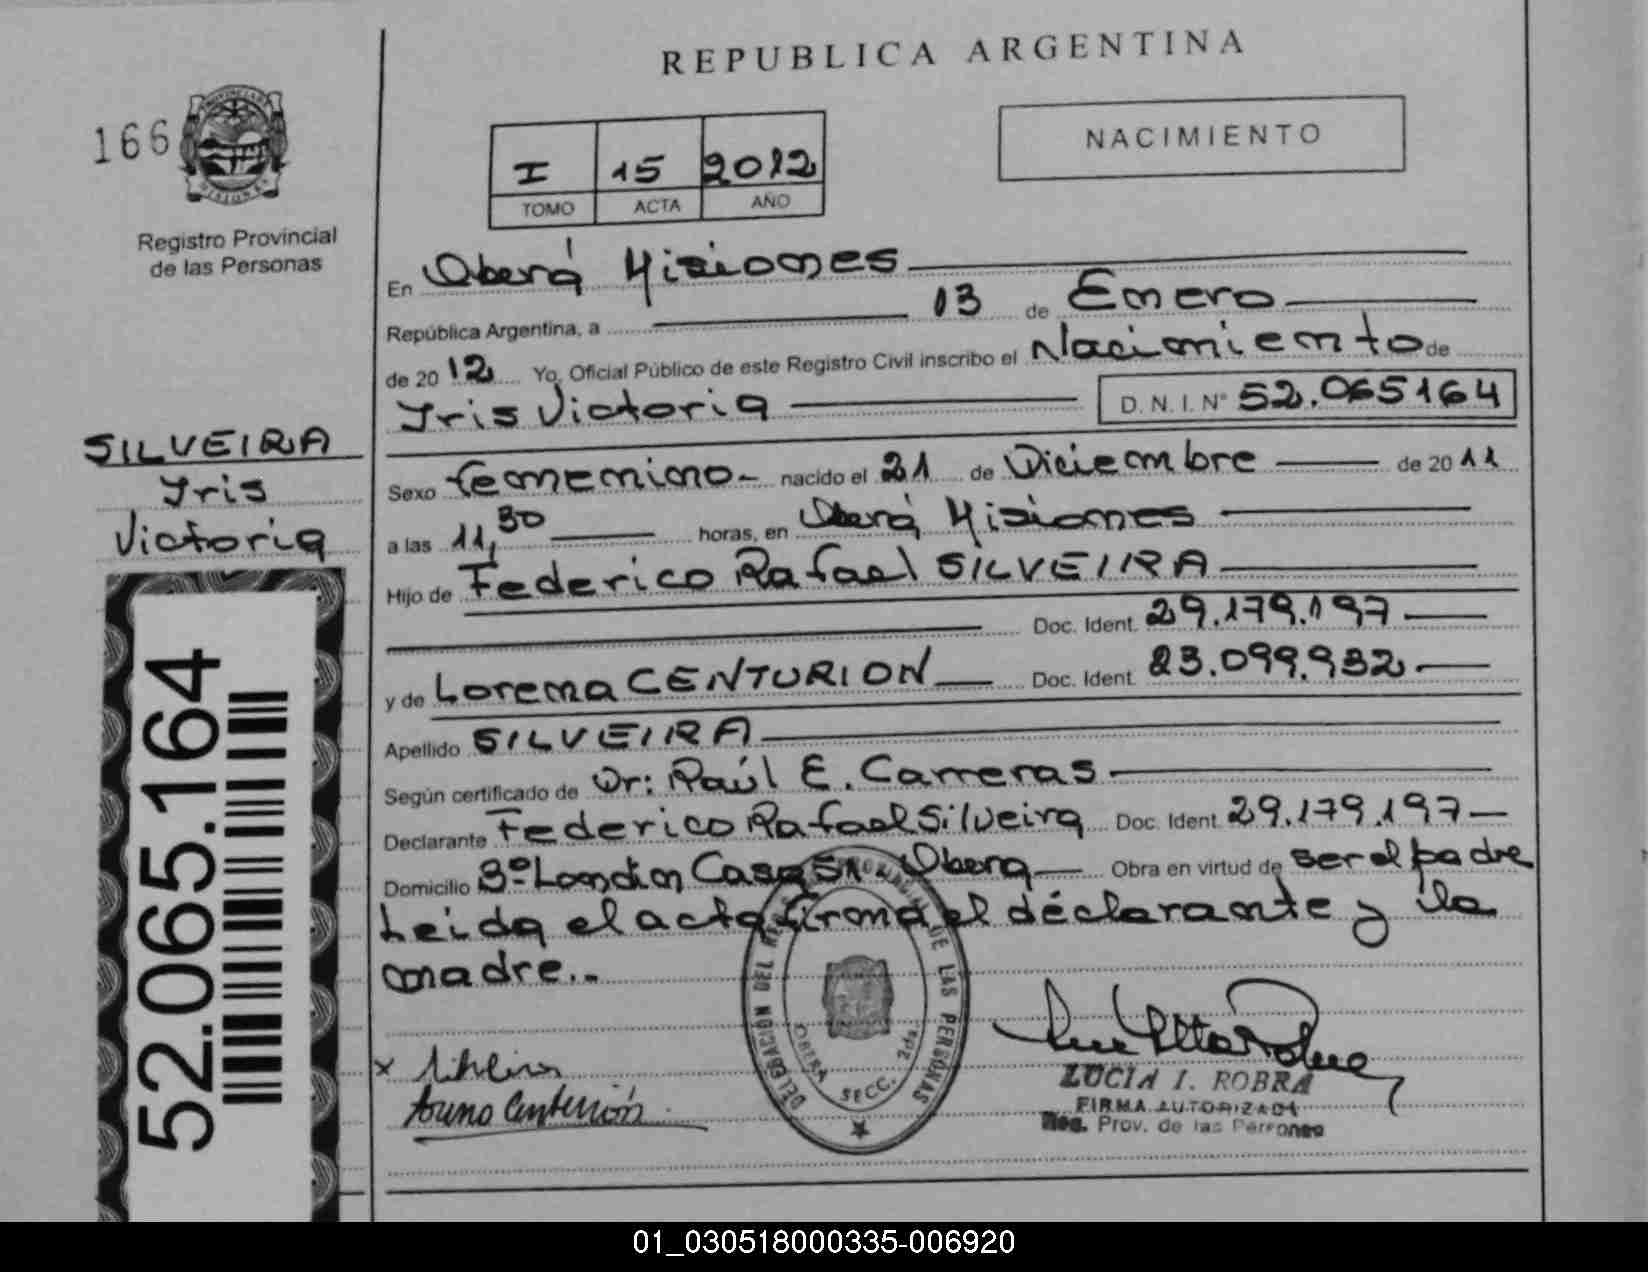 REPUBLICA ARGENTINA
166
I 15 2012
TOMO ACTA AÑO
NACIMIENTO
Registro Provincial
de las Personas
En Oberá Misiones
República Argentina, a 13 de Enero
de 2012 Yo, Oficial Público de este Registro Civil inscribo el Nacimiento de
Iris Victoria D. N. I. N° 52.065164
SILVEIRA
Iris
Victoria
Sexo femenino.- nacido el 21 de Diciembre de 2011
a las 11,30 horas, en Oberá Misiones
Hijo de Federico Rafael SILVEIRA
Doc. Ident. 29.179.197
y de Lorena CENTURION Doc. Ident. 23.099.932
Apellido SILVEIRA
Según certificado de Dr: Raúl E. Carreras
Declarante Federico Rafael Silveira Doc. Ident. 29.179.197
Domicilio 3º London Casa Oberá Obra en virtud de ser el padre
Leida el acta firma el declarante y la
madre.-
52.065.164
DELEGACION DEL DE LAS PERSONAS
OBERA SECC. 2da.
x
Centurión
LUCIA I. ROBRA
FIRMA AUTORIZADA
Reg. Prov. de las Personas
01_030518000335-006920